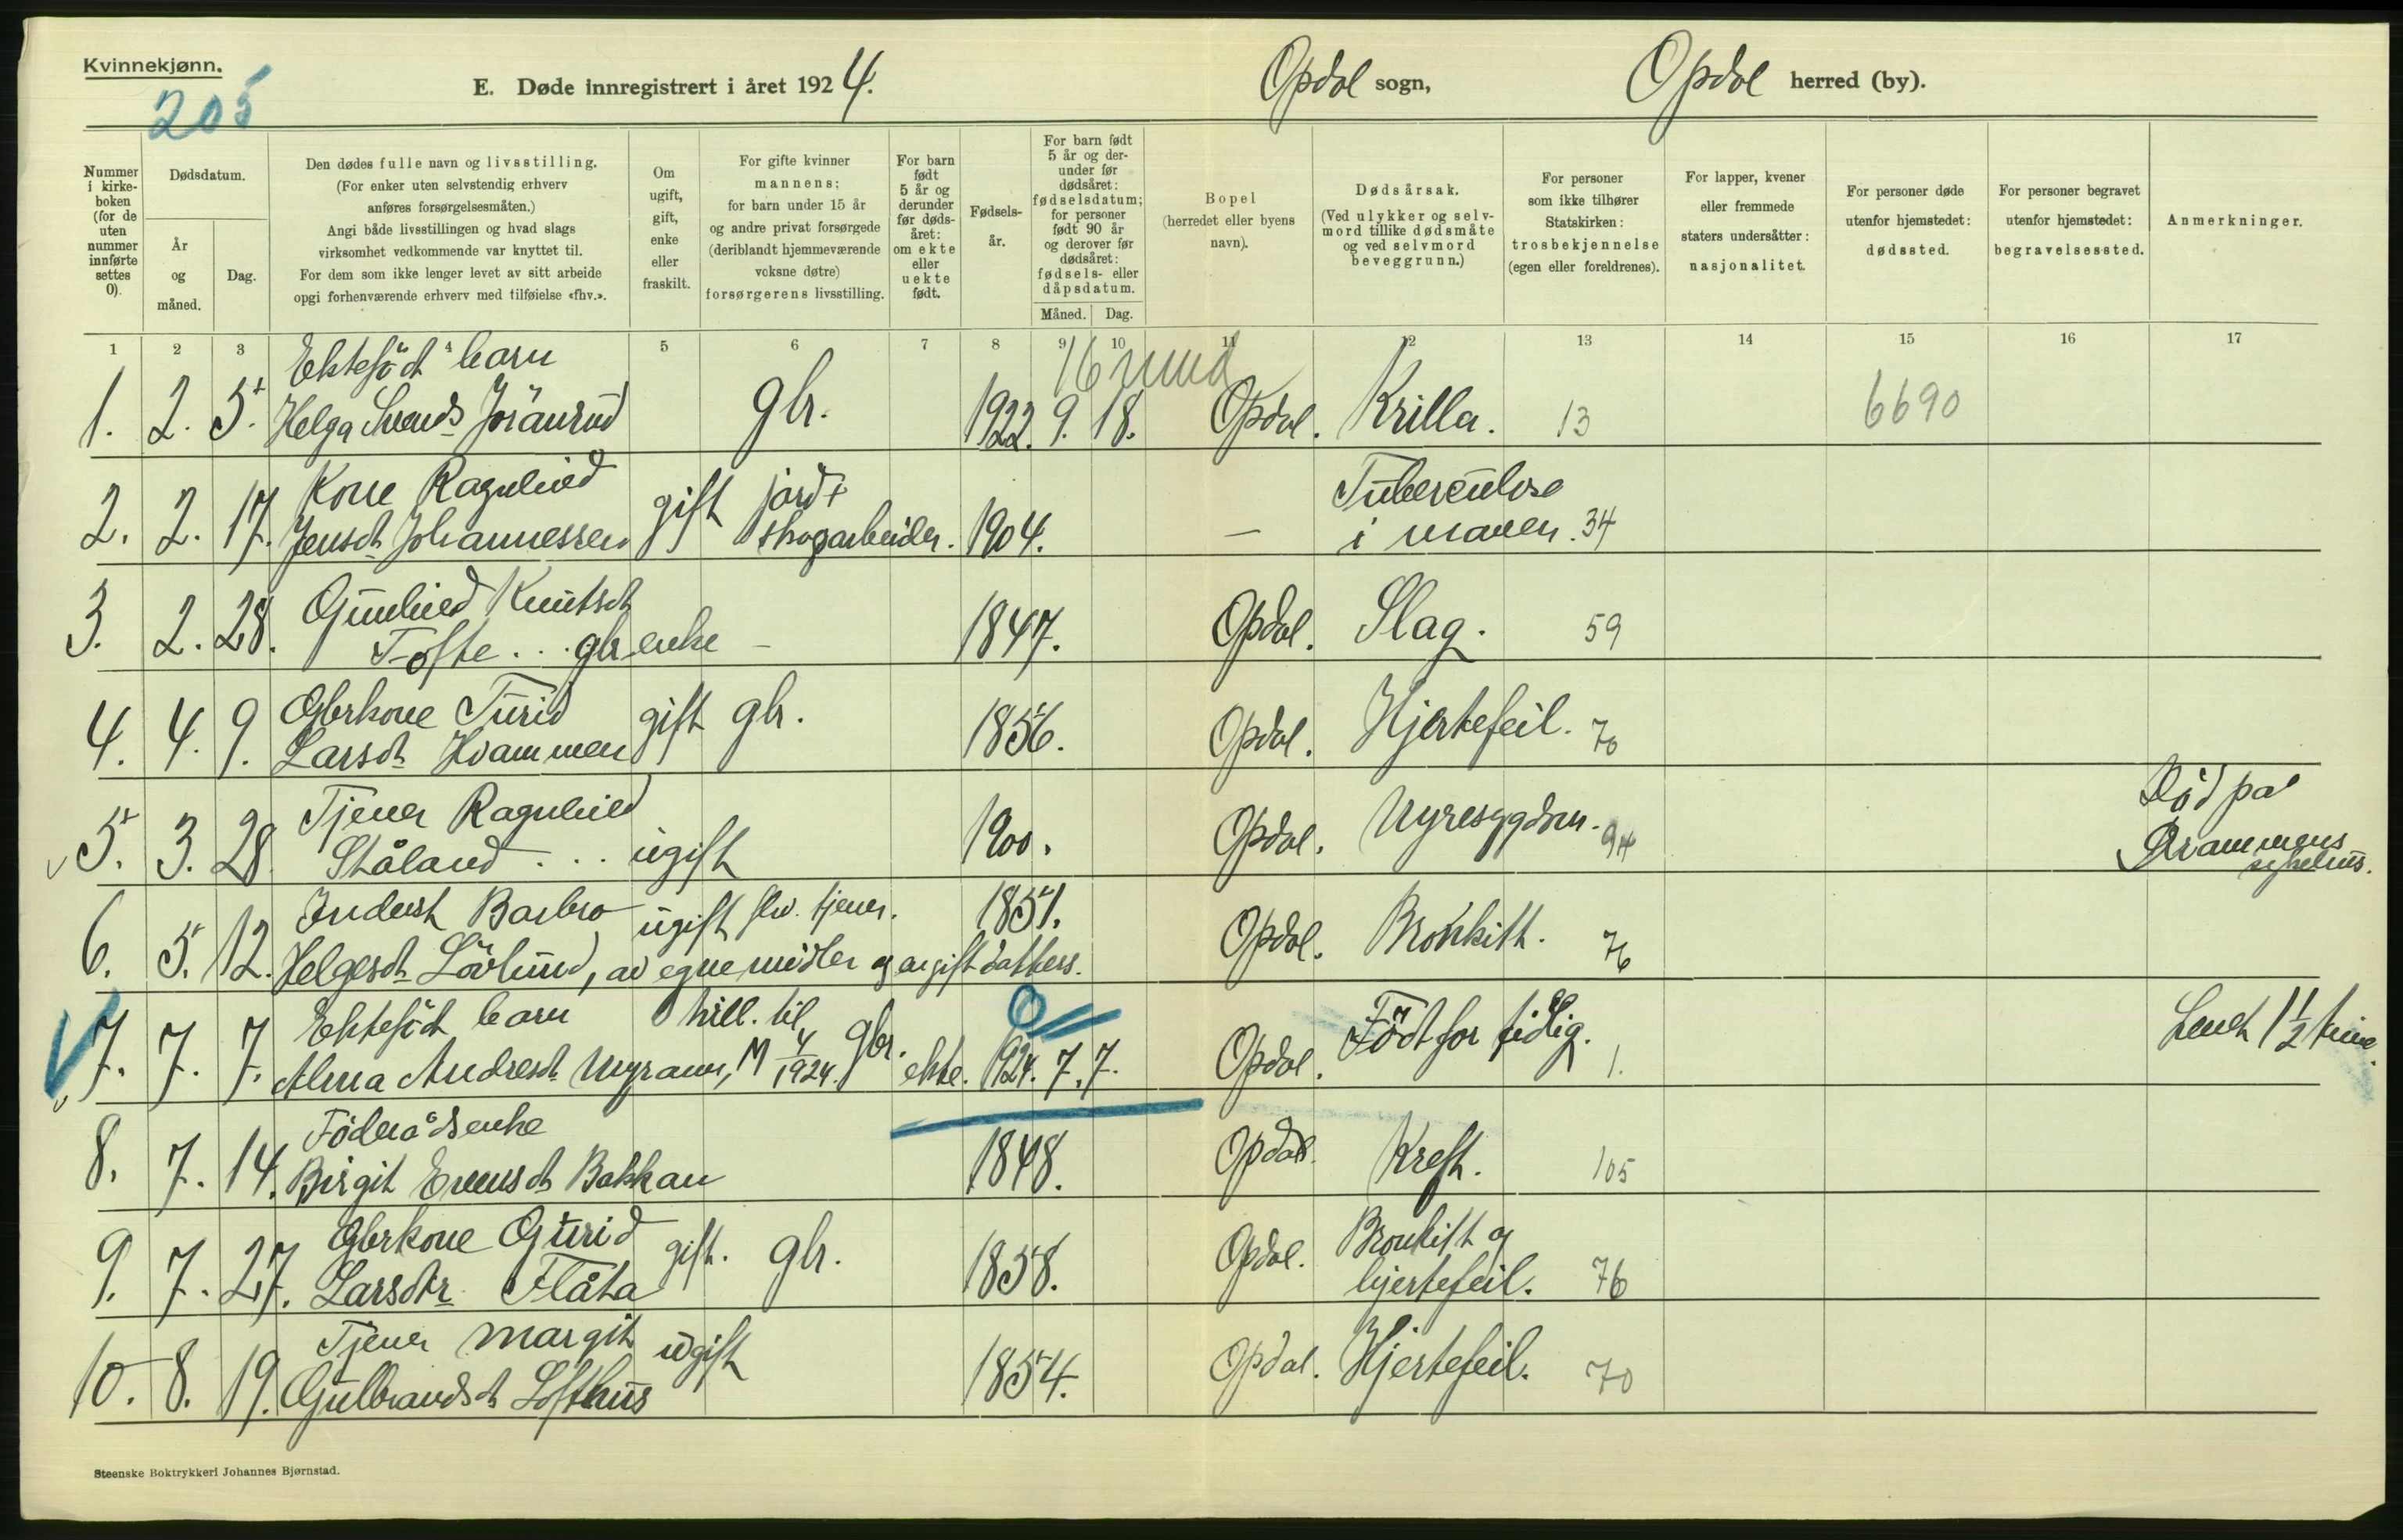 Kvinnekjønn.
205
E. Døde innregistrert i året 1924.
Opdal sogn,
Opdal herred (by).
Nummer i kirke-boken (for de uten nummer innførte settes 0).
Dødsdatum.
År og måned.
Dag.
Den dødes fulle navn og livsstilling.
(For enker uten selvstendig erhverv
anføres forsørgelsesmåten.)
Angi både livsstillingen og hvad slags
virksomhet vedkommende var knyttet til.
For dem som ikke lenger levet av sitt arbeide
opgi forhenværende erhverv med tilføielse «fhv.».
Om ugift, gift, enke eller fraskilt.
For gifte kvinner
mannens;
for barn under 15 år
og andre privat forsørgede
(deriblandt hjemmeværende
voksne døtre)
forsørgerens livsstilling.
For barn født 5 år og derunder før døds-året: om ekte eller uekte født.
Fødsels-år.
For barn født 5 år og der-under før dødsåret: fødselsdatum; for personer født 90 år og derover før dødsåret: fødsels- eller dåpsdatum.
Måned. Dag.
Bopel
(herredet eller byens
navn).
Dødsårsak.
(Ved ulykker og selv-
mord tillike dødsmåte
og ved selvmord
beveggrunn.)
For personer
som ikke tilhører
Statskirken:
trosbekjennelse
(egen eller foreldrenes).
For lapper, kvener
eller fremmede
staters undersåtter:
nasjonalitet.
For personer døde
utenfor hjemstedet:
dødssted.
For personer begravet
utenfor hjemstedet:
begravelsessted.
Anmerkninger.
1 2 3 4 5 6 7 8 9 10 11 12 13 14 15 16 17
Ektefödt barn 16 mnd
1. 2. 5. Helga Svends Jöranrud gbr. 1922. 9. 18. Opdal. Krilla. 13 6690
Kone Ragnhild gift jord+ Tuberculose
2. 2. 17. Jensdt Johannessen skogarbeider. 1904. — i maven. 34
Gunhild Knutsdt
3. 2. 28. Tofte . . . gbr.enke – 1847. Opdal. Slag. 59
Gbrkone Turid gift gbr.
4. 4. 9. Larsdt Hvammen 1856. Opdal. Hjertefeil. 70
Tjener Ragnhild Död paa
5. 3. 28 Skåland . . . ugift 1900. Opdal. Nyresygdom. 94 Drammens
sykehus.
Inderst Barbro ugift fhv. tjener. 1851.
6. 5. 12. Helgesdt Lövlund, av egne midler og avgift datters. Opdal. Bronkitt. 76
Ektefödt barn tvill. til 0 Födt for tidlig. Levet 1 1/2 time.
7. 7. 7. Alma Andresdt Myrann, M 4/1924. gbr. ekte. 1924. 7. 7. Opdal. 1.
Föderådsenke
8. 7. 14. Birgit Evensdt Bakkan 1848. Opdal. Kreft. 105
Gbrkone Gurid gift. gbr. Bronkitt og
9. 7. 27. Larsdtr Flåta 1858. Opdal. hjertefeil. 76
Tjener Margit ugift
10. 8. 19. Gulbrandsdt Lofthus 1854. Opdal. Hjertefeil. 70
Steenske Boktrykkeri Johannes Bjørnstad.